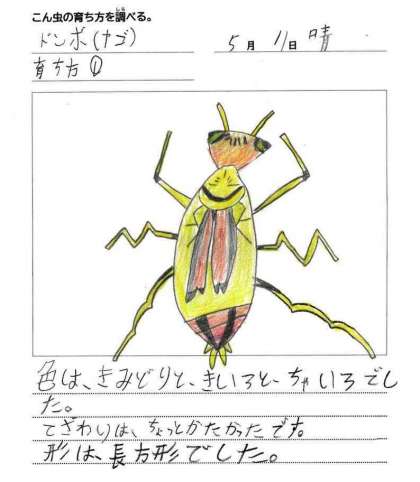 こん虫の育ち方を調べる。
トンボ(ヤゴ)
5月11日 晴
育ち方①
色は、きみどりと、きいろと、ちゃいろでし
た。
てざわりは、ちょっとかたかったです。
形は、長方形でした。